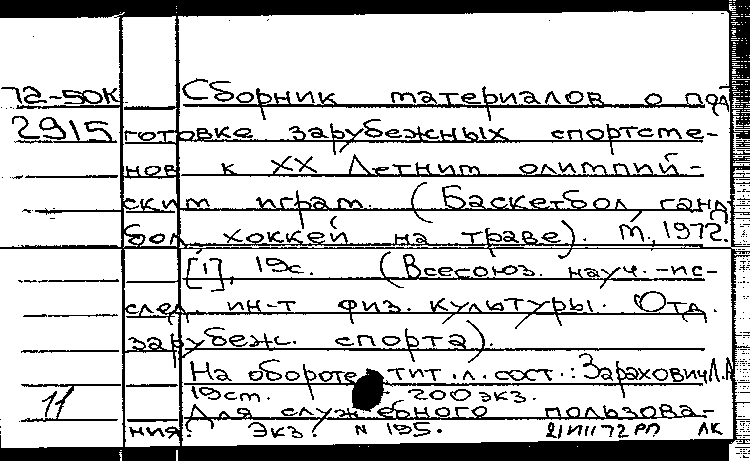 72-50К Сборник материалов о под
2915 готовке зарубежных спортсме-
нов к XX Летним олимпий-
ским играм. (Баскетбол, ганд
бол, хоккей на траве). М., 1972.
[1], 19с. (Всесоюз. науч.-ис-
след. ин-т физ. культуры. Отд.
зарубеж. спорта).
На обороте тит. л. сост.: Зарахович Л.А
19см. 200 экз.
11 Для служебного пользова-
ния. Экз. N 195. ЛК